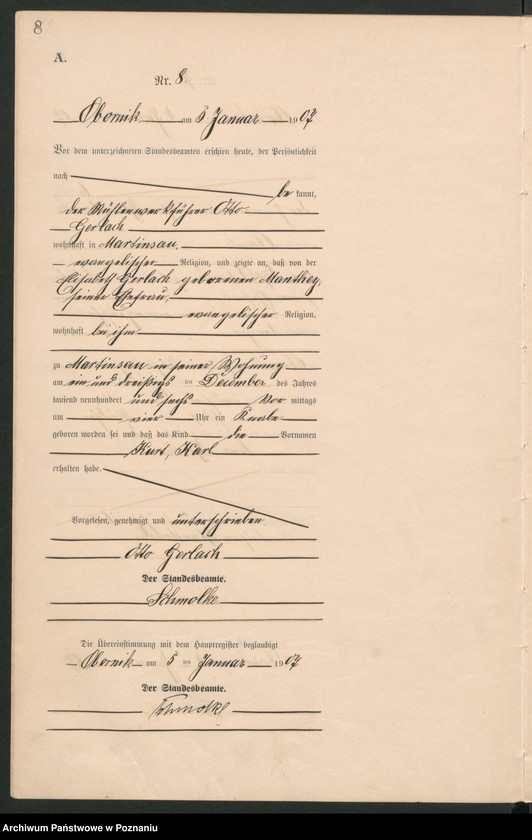 8
A.
Nr. 8.
Obornik am 5 Januar 1907
Vor dem unterzeichneten Standesbeamten erschien heute, der Persönlichkeit
nach be kannt,
der Mühlenwerkführer Otto
Gerlach
wohnhaft in Martinsau,
evangelischer Religion, und zeigte an, daß von der
Elisabeth Gerlach geborenen Manthey,
seiner Ehefrau,
evangelischer Religion,
wohnhaft bei ihm
zu Martinsau in seiner Wohnung
am ein und dreißigsten December des Jahres
tausend neunhundert und sechs Vor mittags
um vier Uhr ein Knabe
geboren worden sei und daß das Kind die Vornamen
Kurt, Karl
erhalten habe.
Vorgelesen, genehmigt und unterschrieben
Otto Gerlach
Der Standesbeamte.
Schmolke
Die Übereinstimmung mit dem Hauptregister beglaubigt
Obornik am 5 ten Januar 1907
Der Standesbeamte.
Schmolke
Archiwum Państwowe w Poznaniu